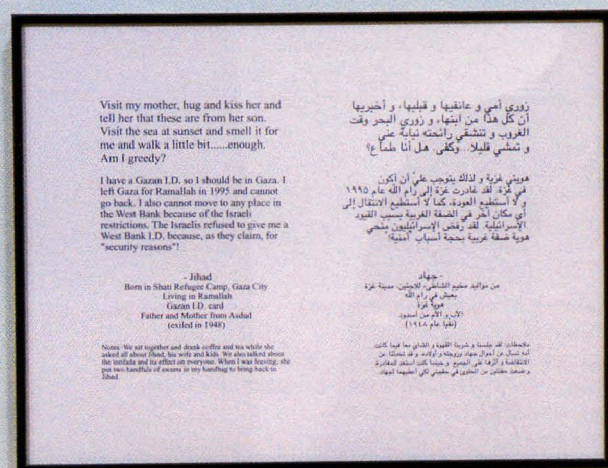 Visit my mother, hug and kiss her and
tell her that these are from her son.
Visit the sea at sunset and smell it for
me and walk a little bit......enough.
Am I greedy?
I have a Gazan I.D. so I should be in Gaza. I
left Gaza for Ramallah in 1995 and cannot
go back. I also cannot move to any place in
the West Bank because of the Israeli
restrictions. The Israelis refused to give me a
West Bank I.D. because, as they claim, for
"security reasons"!
- Jihad
Born in Shati Refugee Camp, Gaza City
Living in Ramallah
Gazan I.D. card
Father and Mother from Asdud
(exiled in 1948)
Notes: We sat together and drank coffee and tea while she
asked all about Jihad, his wife and kids. We also talked about
the intifada and its effect on everyone. When I was leaving, she
put two handfuls of sweets in my handbag to bring back to
Jihad.
زوري أمي و عانقيها و قبليها، و أخبريها
أن كل هذا من ابنها، و زوري البحر وقت
الغروب و تنشقي رائحته نيابة عني
و تمشي قليلا...وكفى. هل أنا طماع؟
هويتي غزية و لذلك يتوجب علي أن أكون
في غزة. لقد غادرت غزة إلى رام الله عام ١٩٩٥
و لا أستطيع العودة، كما لا أستطيع الانتقال إلى
أي مكان آخر في الضفة الغربية بسبب القيود
الإسرائيلية. لقد رفض الإسرائيليون منحي
هوية ضفة غربية بحجة أسباب أمنية!
- جهاد
من مواليد مخيم الشاطىء للاجئين، مدينة غزة
يعيش في رام الله
هوية غزة
الأب و الأم من أسدود
(نفيا عام ١٩٤٨)
ملاحظات: لقد جلسنا و شربنا القهوة و الشاي معا فيما كانت
أمه تسأل عن أحوال جهاد وزوجته و أولاده. و قد تحدثنا عن
الانتفاضة و أثرها على الجميع. و حينما كنت أستعد للمغادرة،
وضعت حفنتين من الحلوى في حقيبتي لكي أعطيهما لجهاد.